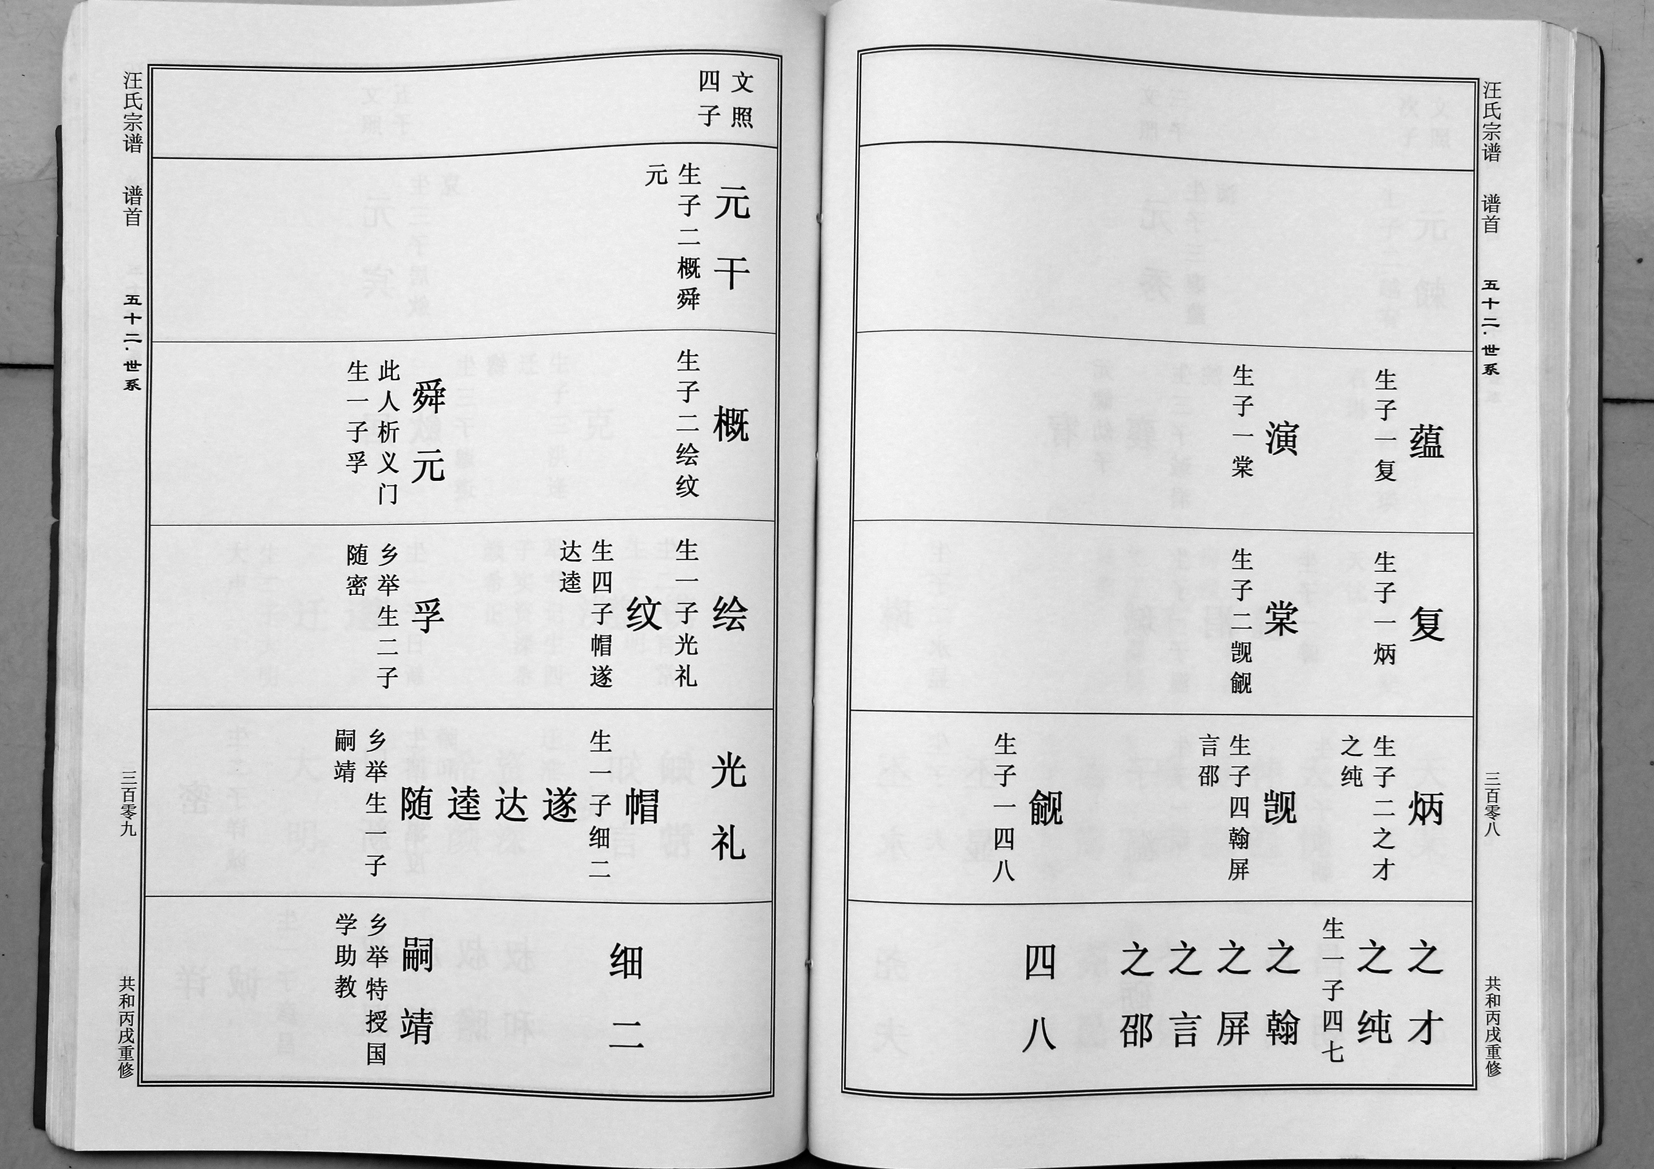 汪氏宗谱
谱首
五十二·世系
三百零八
共和丙戌重修
蕴
生子一复
演
生子一棠
复
生子一炳
棠
生子二觊觎
炳
生子二之才
之纯
觊
生子四翰屏
言邵
觎
生子一四八
之才
之纯
生一子四七
之翰
之屏
之言
之邵
四八
文照
四子
元干
生子二概舜
元
概
生子二绘纹
舜元
此人析义门
生一子孚
绘
生一子光礼
纹
生四子帽遂
达逵
孚
乡举生二子
随密
光礼
帽
生一子细二
遂
达
逵
随
乡举生一子
嗣靖
细二
嗣靖
乡举特授国
学助教
汪氏宗谱
谱首
五十二·世系
三百零九
共和丙戌重修